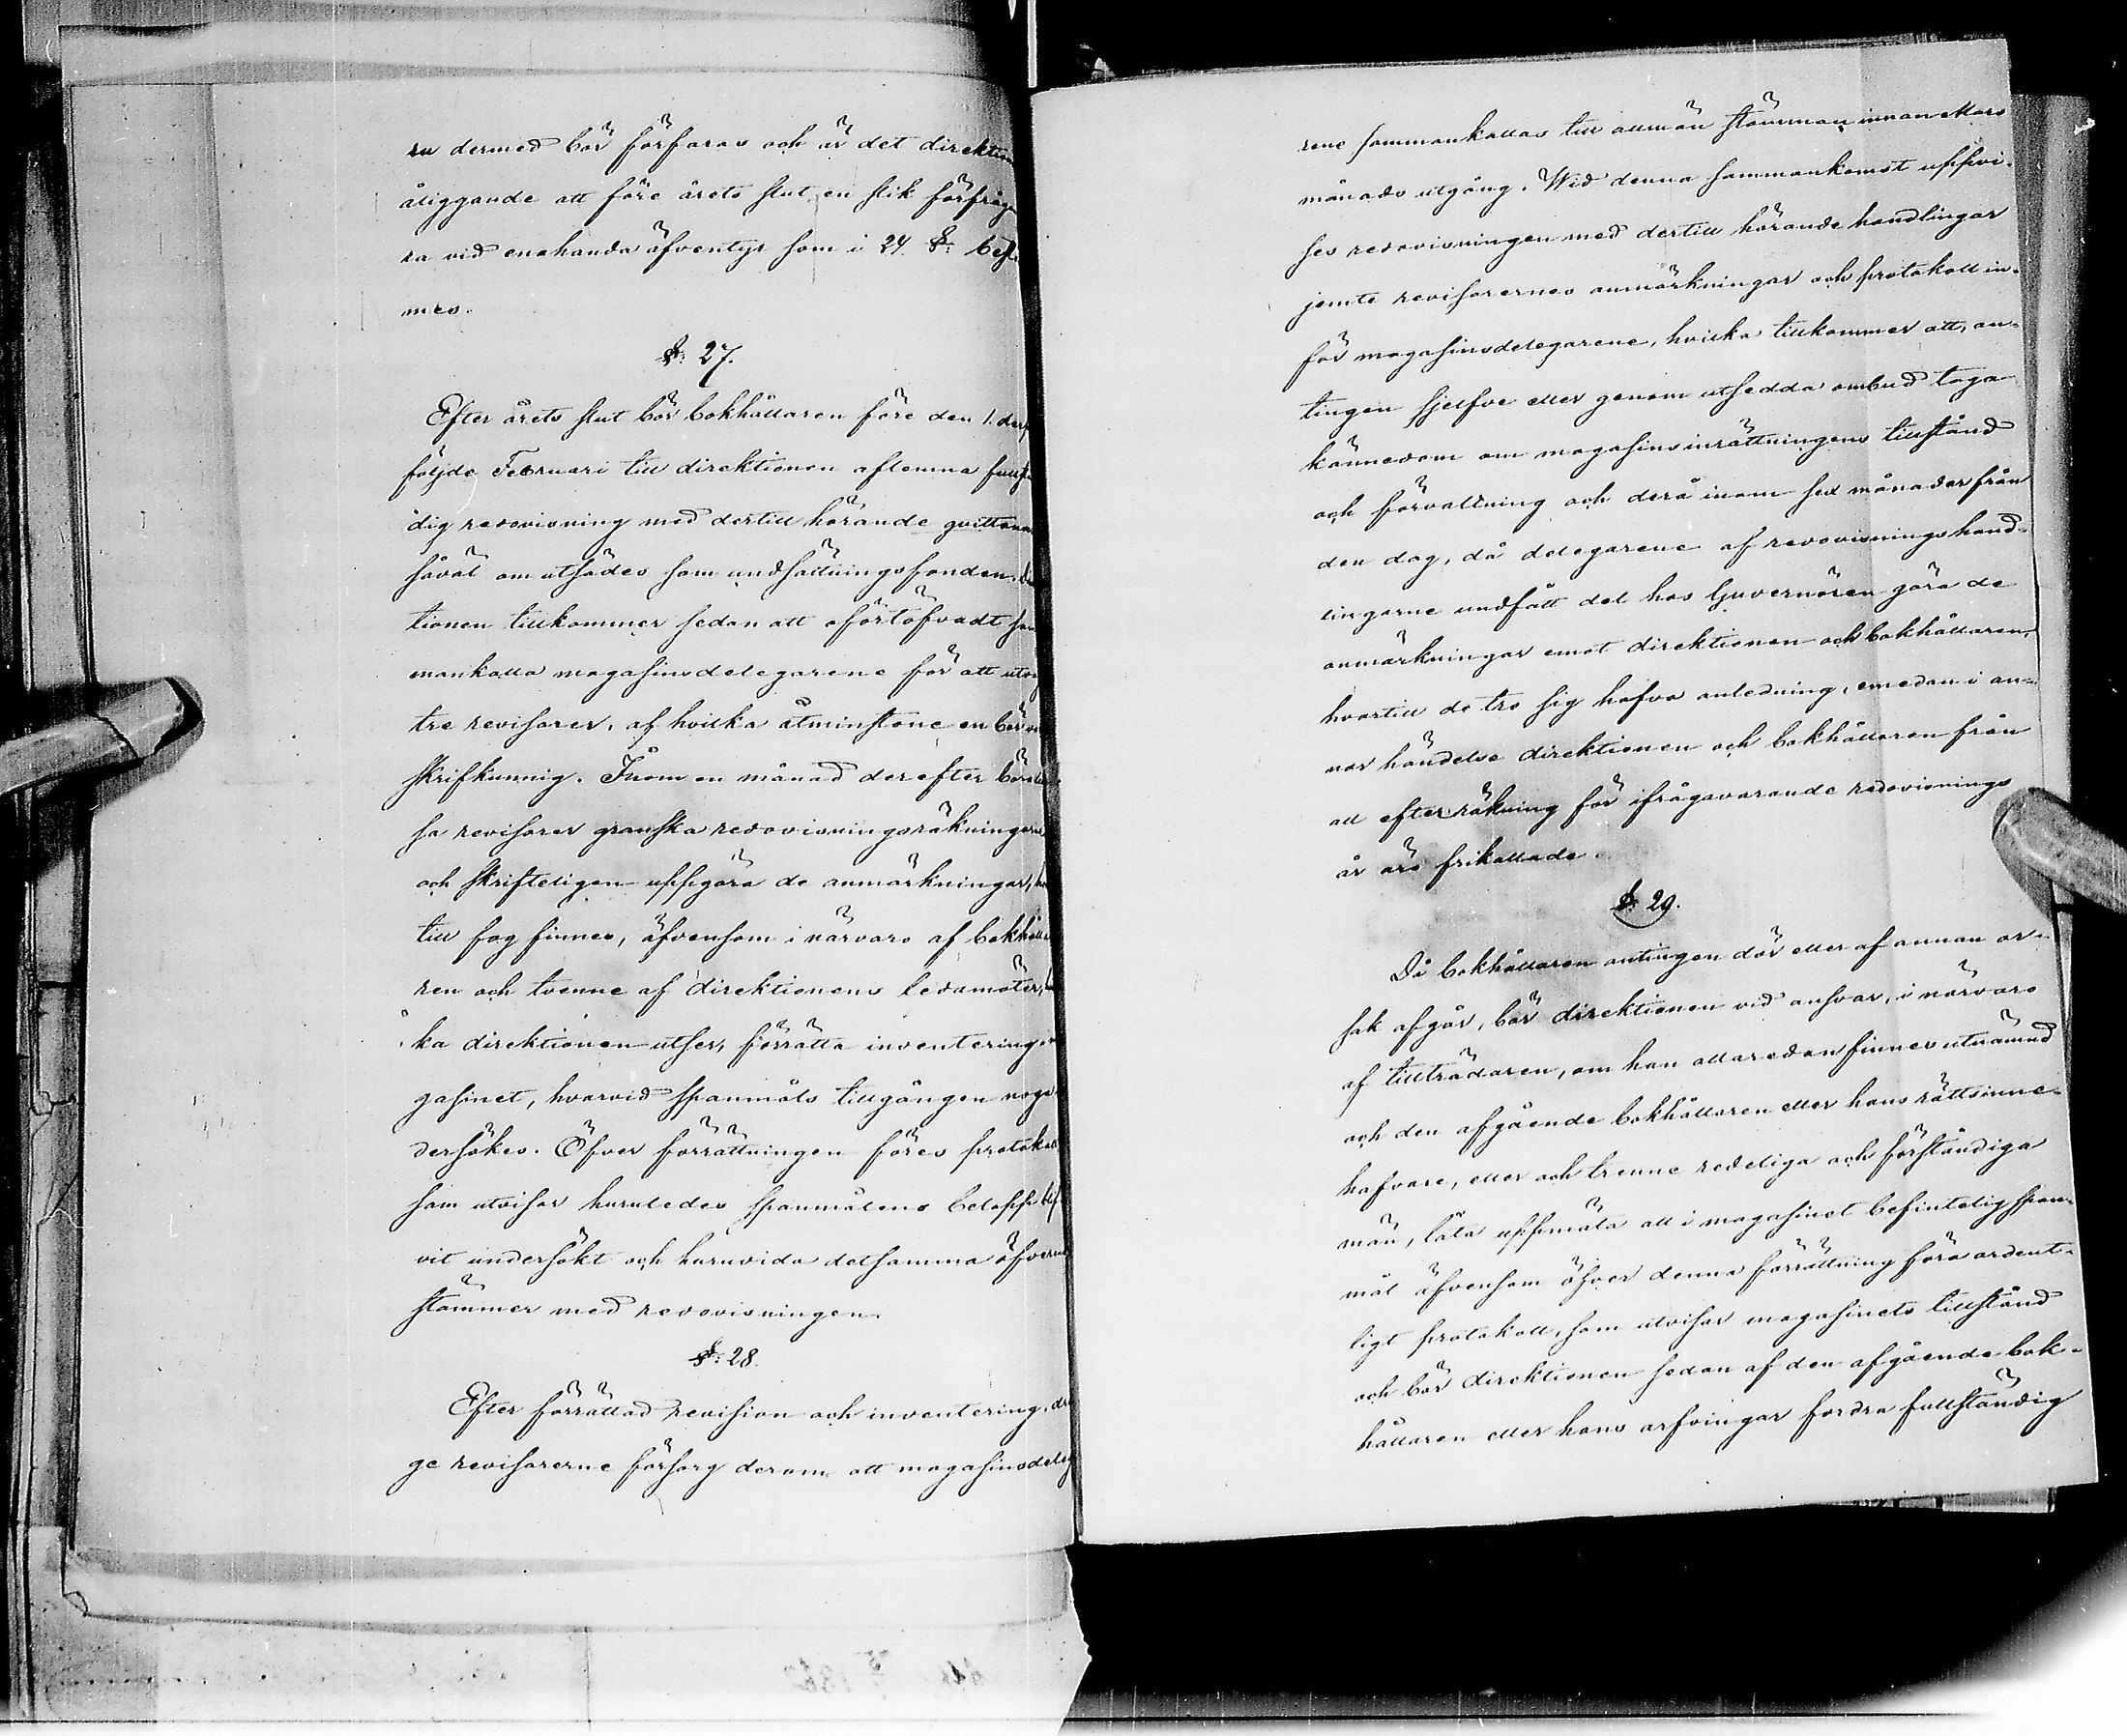 ru dermed bör förfaras och är det direktion
åliggande att före årets slut en slik förfråga
ra vid enahanda äfventyr som i 24. §: bestä
mes.
§: 27.
Efter årets slut bör bokhållaren före den 1. der
följde Februari till direktionen aflemna fullstä
dig redovisning med dertill hörande qvittan
såväl om utsädes som undsättningsfonden. Di
tionen tillkommer sedan att oförtöfvadt sa
mankalla magasinsdelegarene för att uts
tre revisorer, af hvilka åtminstone en bör
skrifkunnig. Inom en månad derefter bör
sa revisorer granska redovisningsräkningarne
och skrifteligen uppgöra de anmärkningar,
till fog finnes, äfvensom i närvaro af bokhålla
ren och tvenne af direktionens ledamöter,
ka direktionen utser, förrätta inventering i
gasinet, hvarvid spanmåls tillgången noga
dersökes. Öfver förrättningen föres protokoll
som utvisar huruledes spanmålens belopp blif
vit undersökt och huruvida detsamma öfverens
stämmer med redovisningen.
§: 28.
Efter förrättad revision och inventering, dr
ge revisorerne försorg derom att magasinsdeleg
rene sammankallas till allmän stämman innan Mars
månads utgång. Wid denna sammankomst uppvi-
ses redovisningen med dertill hörande handlingar
jemte revisorernes anmärkningar och protokoll in-
för magasinsdelegarene, hvilka tillkommer att, an-
tingen sjelfve eller genom utsedda ombud taga
kännedom om magasinsinrättningens tillstånd
och förvaltning och derå inom sex månader från
den dag, då delegarene af redovisningshand-
lingarne undfått del hos Guvernören göra de
anmärkningar emot direktionen och bokhållaren,
hvartill de tro sig hafva anledning, emedan i an-
nor händelse direktionen och bokhållaren från
all efterräkning för ifrågavarande redovisnings
år äro frikallade.
§: 29.
Då bokhållaren antingen dör eller af annan or-
sak afgår, bör direktionen vid ansvar, i närvaro
af tillträdaren, om han allaredan finnes utnämnd
och den afgående bokhållaren eller hans rättsinne-
hafvare, eller och trenne redeliga och förståndiga
män, låta uppmäta all i magasinet befintelig span-
mål äfvensom öfver denna förrättning föra ordent-
ligt protokoll, som utvisar magasinets tillstånd
och bör direktionen sedan af den afgående bok-
hållaren eller hans arfvingar fordra fullständig